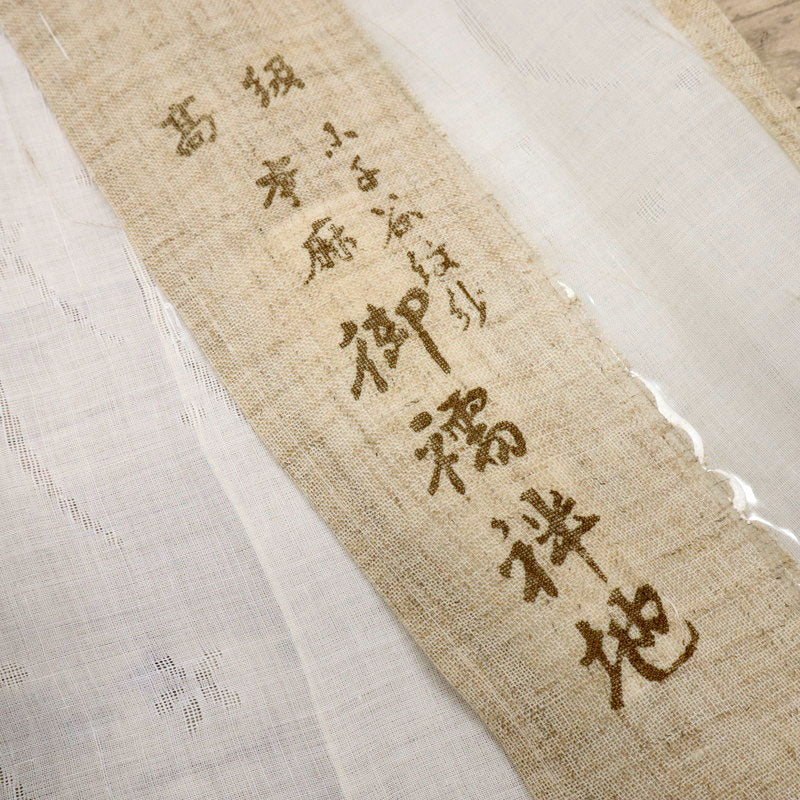 高級
小千谷紋紗
本麻
御襦袢地